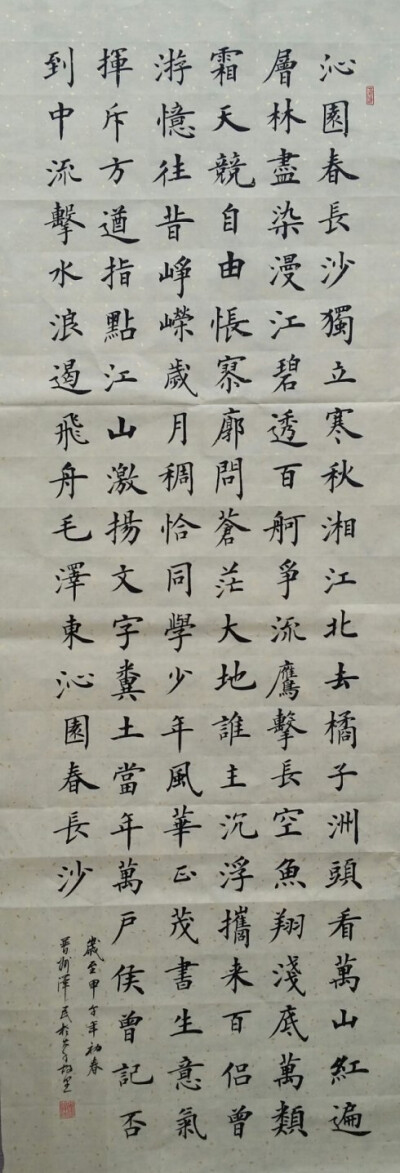 沁園春長沙獨立寒秋湘江北去橘子洲頭看萬山紅遍
層林盡染漫江碧透百舸爭流鷹擊長空魚翔淺底萬類
霜天競自由悵寥廓問蒼茫大地誰主沉浮攜来百侣曾
游憶往昔崢嶸歲月稠恰同學少年風華正茂書生意氣
揮斥方遒指點江山激揚文字糞土當年萬户侯曾記否
到中流擊水浪遏飛舟毛澤東沁園春長沙
歲至甲午年初春